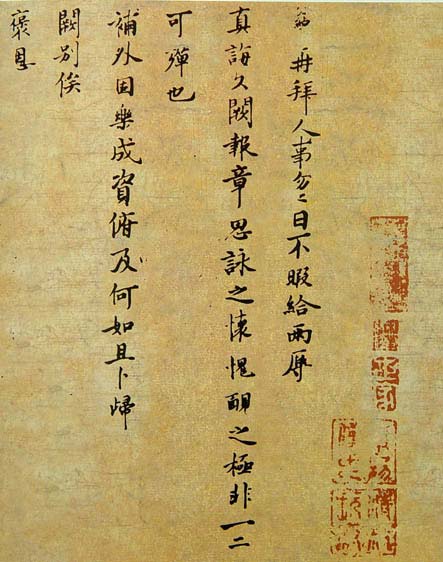 再拜人事匆匆日不暇給兩辱
真誨久闕報章思詠之懷愧靦之極非一二
可殫也
補外固樂成資俯及何如且卜歸
闕別俟
褒恩